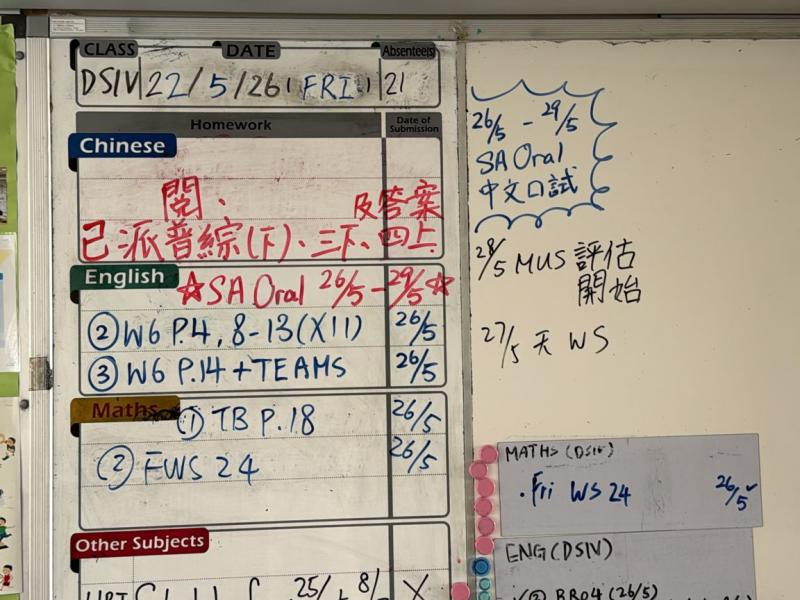 CLASS DATE Absentee(s)
DSIV 22/5/26 (FRI) 21
Homework Date of Submission
Chinese
閱、 及答案
已派普綜(下)、三下、四上
English
☆SA Oral 26/5 - 29/5☆
② W6 P.4, 8-13 (X11) 26/5
③ W6 P.14 + TEAMS 26/5
Maths
① TB P.18 26/5
② FWS 24 26/5
Other Subjects
25/ 8/ X
26/5 - 29/5
SA Oral
中文口試
28/5 MUS 評估
開始
27/5 天 WS
MATHS (DSIV)
· Fri WS 24 26/5 ✓
ENG (DSIV)
(26/5)